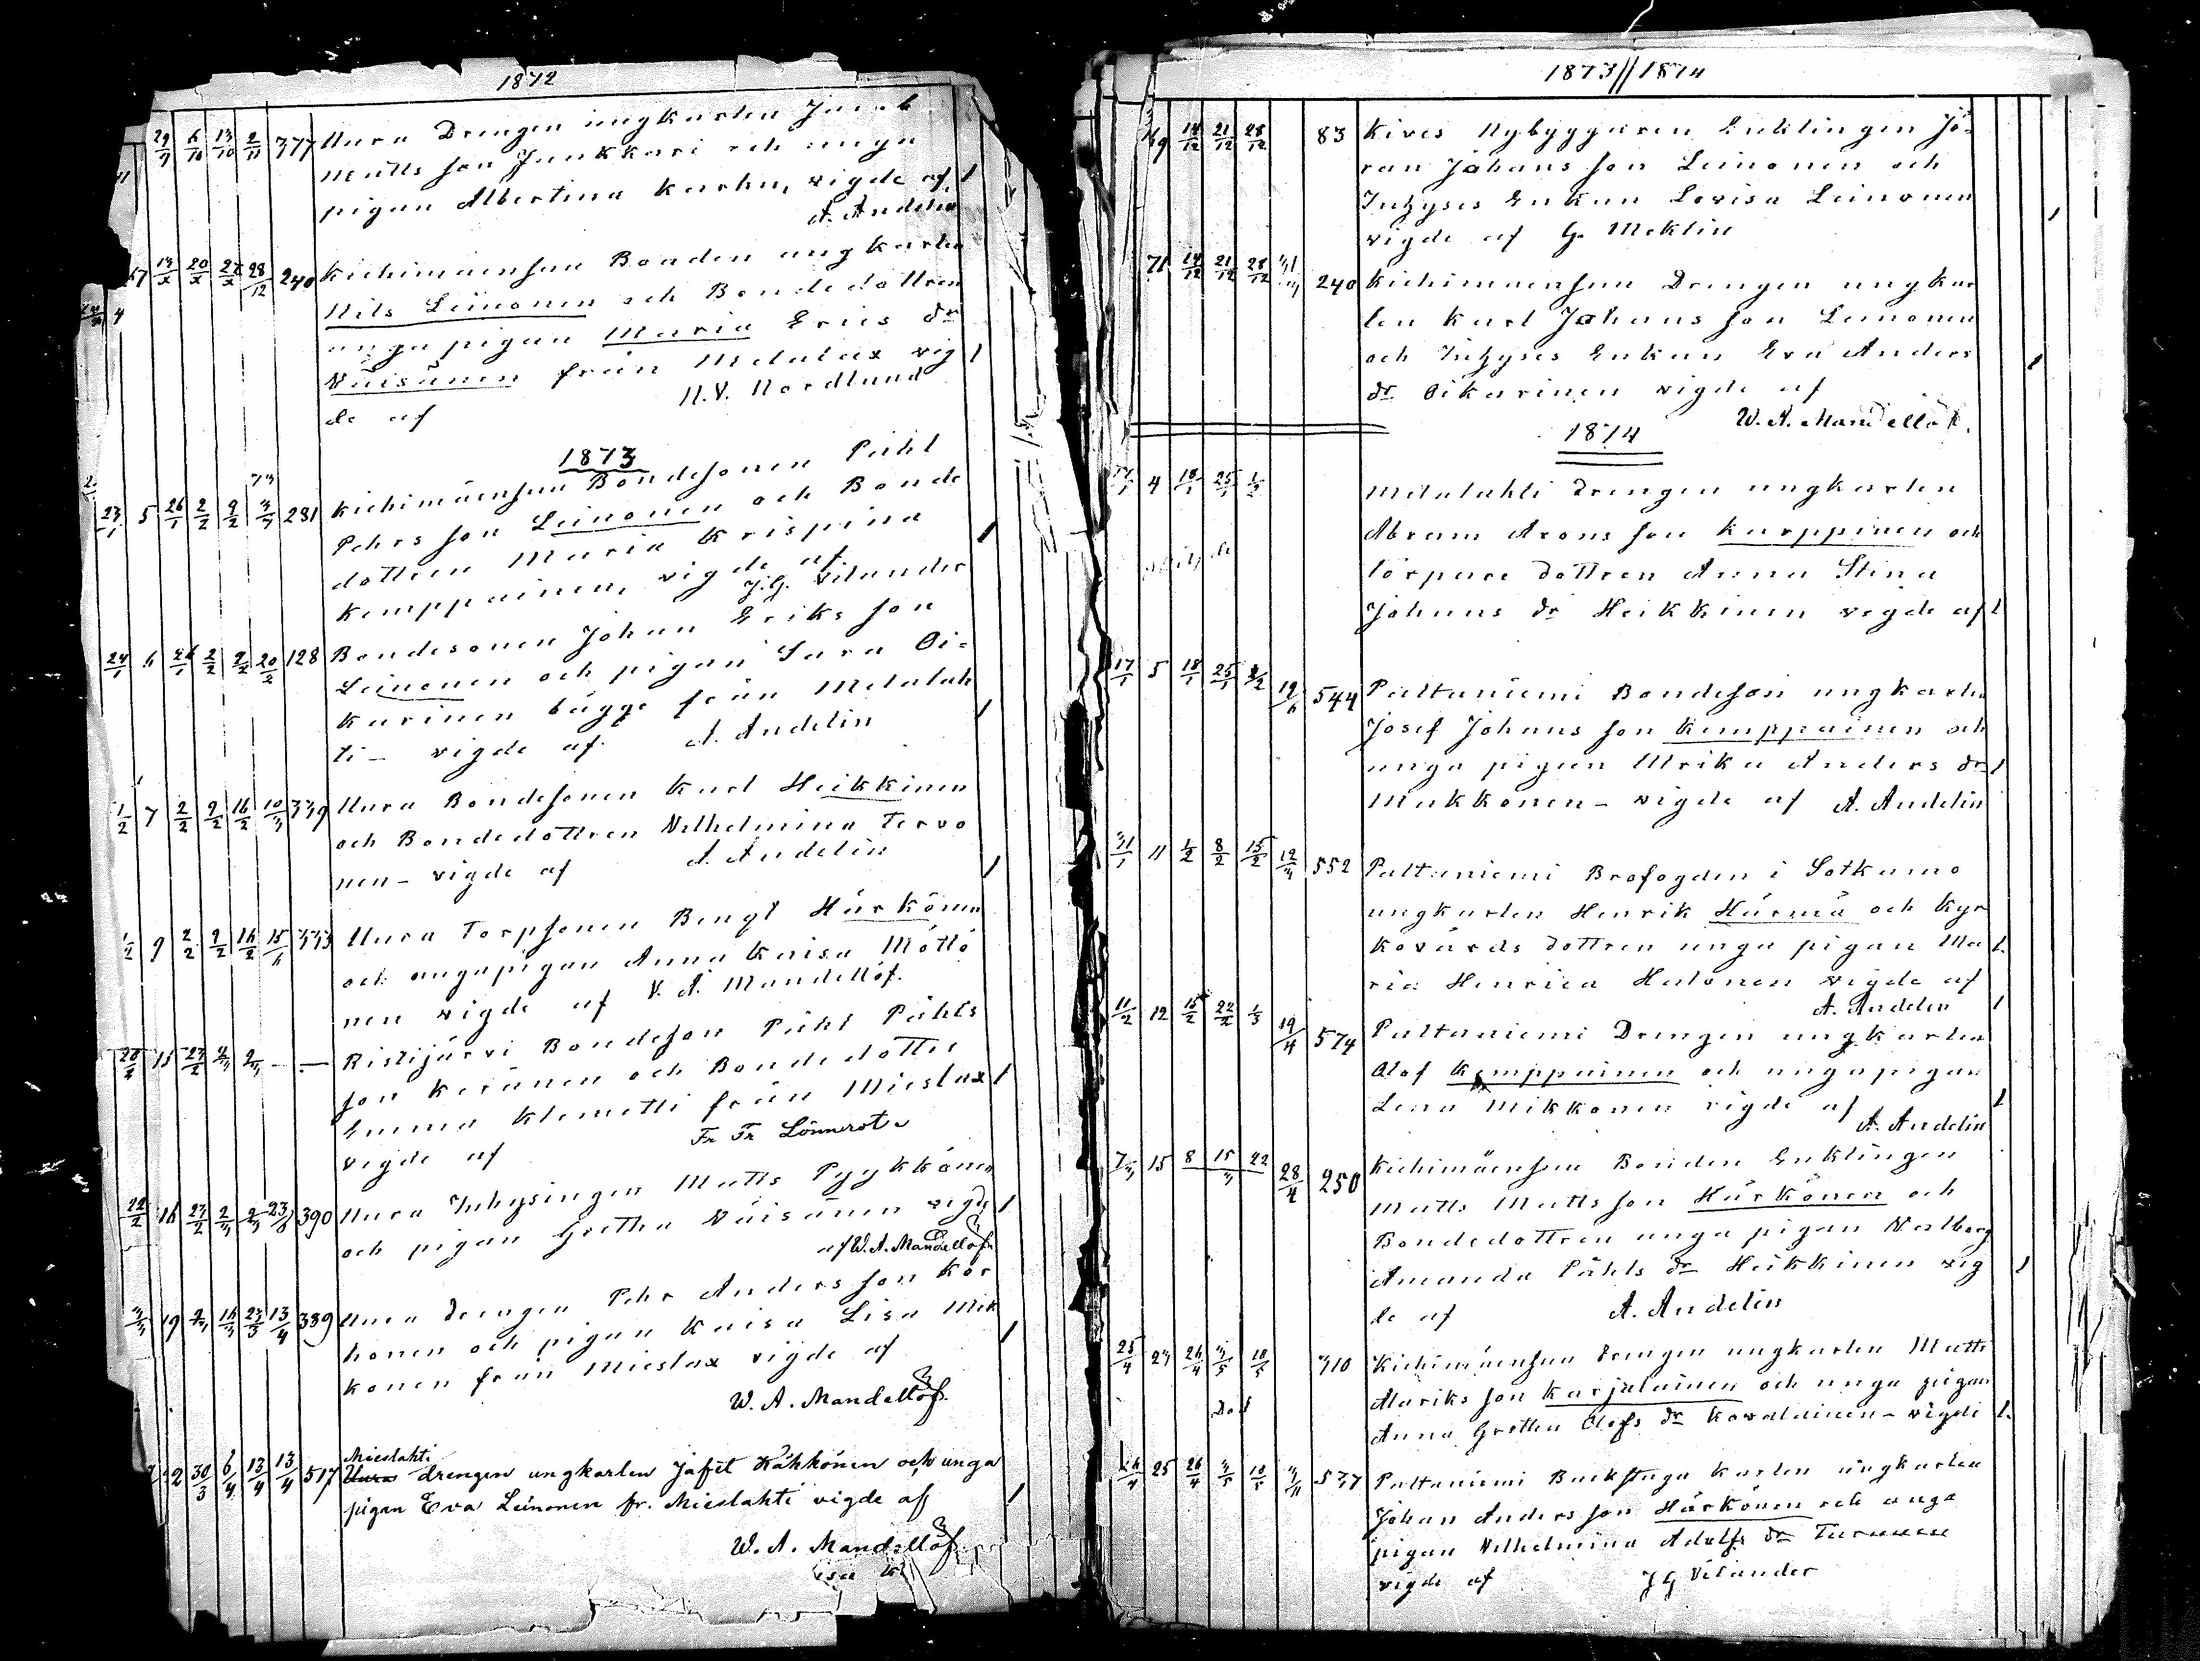 1872
29/9 6/10 13/10 2/11 377 Uura Drengen ungkarlen Jacob
Matts son Junkkari och unga
pigan Albertina Karhu, vigde af
A. Andelin
67 13/x 20/x 27/x 28/12 240 Kiehimäensuu Bonden ungkarlen
Nils Leinonen och Bondedottren
unga pigan Maria Eriks dr
Väisänen från Melalax vig
de af N.V. Nordlund
1873
23/1 5 26/1 2/2 9/2 281 Kiehimäensuu Bondesonen Påhl
Pehrs son Leinonen och Bonde
dottren Maria Krispina
Kemppainen, vigde af
J.G. Vilander
24/1 6 26/1 2/2 9/2 20/2 128 Bondesonen Johan Eriks son
Leinonen och pigan Sara Oi=
karinen bägge från Melalah
ti – vigde af A. Andelin
1/2 7 2/2 9/2 16/2 10/3 339 Uura Bondesonen Karl Heikkinen
och Bondedottren Vilhelmina Tervo
nen – vigde af A. Andelin
1/2 9 2/2 9/2 16/2 333 Uura Torpsonen Bengt Härkönen
och ungapigan Anna Kaisa Möttö
nen vigde af V. A. Mandellöf.
15 Ristijärvi Bondeson Påhl Påhls
son Keränen och Bondedotter
Emma Klemetti från Mieslax
vigde af Fr Fr Lönnrot
22/2 16 390 Uura Inhysingen Matts Pyykkönen
och pigan Gretha Väisänen vigde
af W. A. Mandellöf
19 13/4 389 Uura drengen Pehr Anders son Kor
honen och pigan Kaisa Lisa Mik
konen från Mieslax vigde af
W. A. Mandellöf.
30/3 6/4 13/4 13/4 517 Mieslahti
Uura drengen ungkarlen Jafet Kähkönen och unga
pigan Eva Leinonen fr. Mieslahti vigde af
W. A. Mandellöf
1873//1874
69 14/12 21/12 28/12 83 Kives Nybyggaren Enklingen Jö=
ran Johans son Leinonen och
Inhyses Enkan Lovisa Leinonen
vigde af G. Meklin
71 14/12 21/12 28/12 240 Kiehimäensuu Drengen ungkar
len Karl Johans son Leinonen
och Inhyses Enkan Eva Anders
dr Oikarinen vigde af
W. A. Mandellöf.
1874
4 18/1 25/1 1/2 Melalahti drengen ungkarlen
Abram Arons son Karppinen och
torpare dottren Anna Stina
Johans dr Heikkinen vigde af
17/1 5 18/1 25/1 544 Paltaniemi Bondeson ungkarlen
Josef Johans son Kemppainen och
unga pigan Ulrika Anders dr
Mukkonen – vigde af A. Andelin
31/1 11 1/2 8/2 15/2 12/3 552 Paltaniemi Brofogden i Sotkamo
ungkarlen Henrik Härmä och Kyr
kovärds dottren unga pigan Ma
ria Henrica Hulonen vigde af
A. Andelin
11/2 12 15/2 22/2 1/3 19/4 574 Paltaniemi Drengen ungkarlen
Olof Kemppainen och ungapigan
Lena Mikkonen vigde af
A. Andelin
7/3 15 8 15/3 22 28/4 250 Kiehimäensuu Bonden Enklingen
Matts Matts son Härkönen och
Bondedottren unga pigan Valborg
Amanda Påhls dr Heikkinen vig
de af A. Andelin
25/4 23 26/4 3/5 10/5 310 Kiehimäensuu drengen ungkarlen Matts
Mariks son Karjalainen och unga pigan
Anna Gretha Olofs dr Kovalainen – vigde
26/4 25 26/4 3/5 10/5 577 Paltaniemi Backstuga karlen ungkarlen
Johan Anders son Härkönen och unga
pigan Vilhelmina Adolfs dr Turunen
vigde af J G Vilander